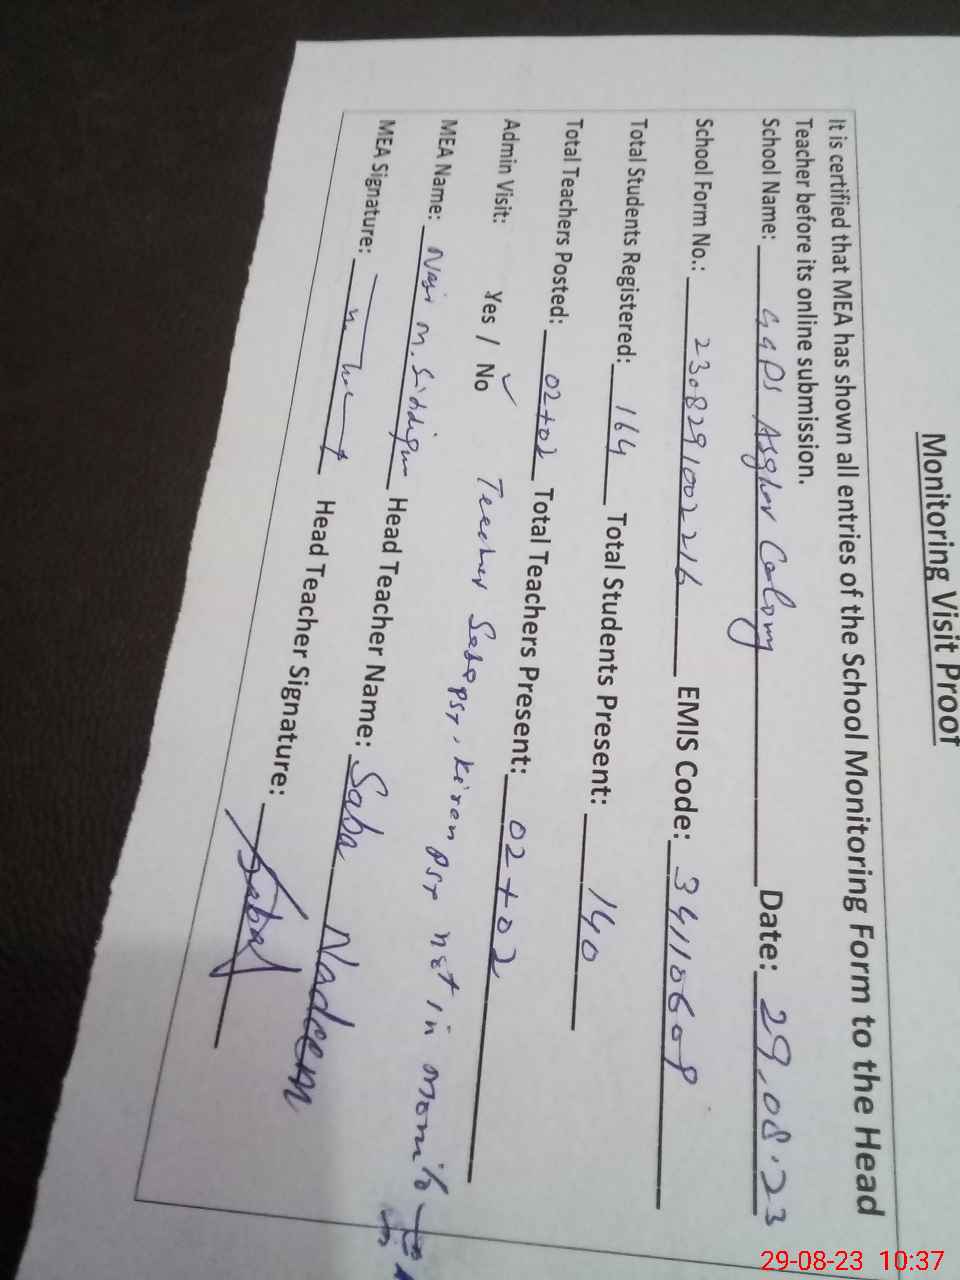 Monitoring Visit Proof
It is certified that MEA has shown all entries of the School Monitoring Form to the Head
Teacher before its online submission.
School Name: GGPS Asghar Colony Date: 29.08.23
School Form No.: 230829100 2216 EMIS Code: 34110609
Total Students Registered: 164 Total Students Present: 140
Total Teachers Posted: 02+02 Total Teachers Present: 02+02
Admin Visit: Yes / No ✓ Teacher PST, Kiran PST not in
MEA Name: M. Siddiqu Head Teacher Name: Saba Nadeem
MEA Signature: Head Teacher Signature: Saba
29-08-23 10:37